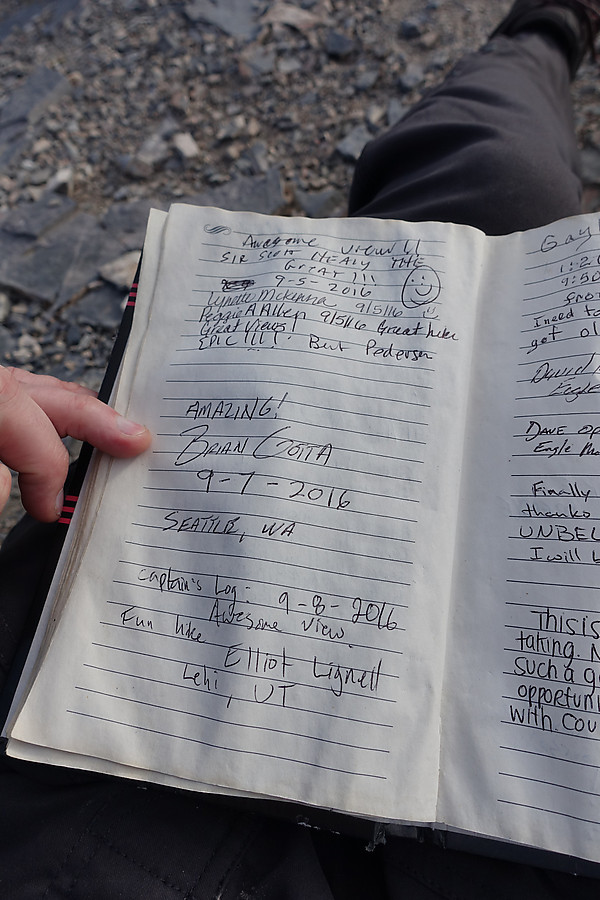 Awesome view!!
SIR SCOTT HEALY THE
GREAT!!!
9-5-2016
Lynnie McKenna 9/5/16
Peggie A Allen 9/5/16 Great hike
Great Views!
EPIC!!!! Bert Pedersen
AMAZING!
BRIAN
9-7-2016
SEATTLE, WA
Captain's Log- 9-8-2016
Awesome view.
Fun hike
Elliot Lignell
Lehi, UT
Gay
1:20
9:50
from
I need to
get ol
David
Eagle
DAVE
Eagle
Finally
thanks
UNBEL
I will
This is
taking. N
such a go
opportuni
with cou